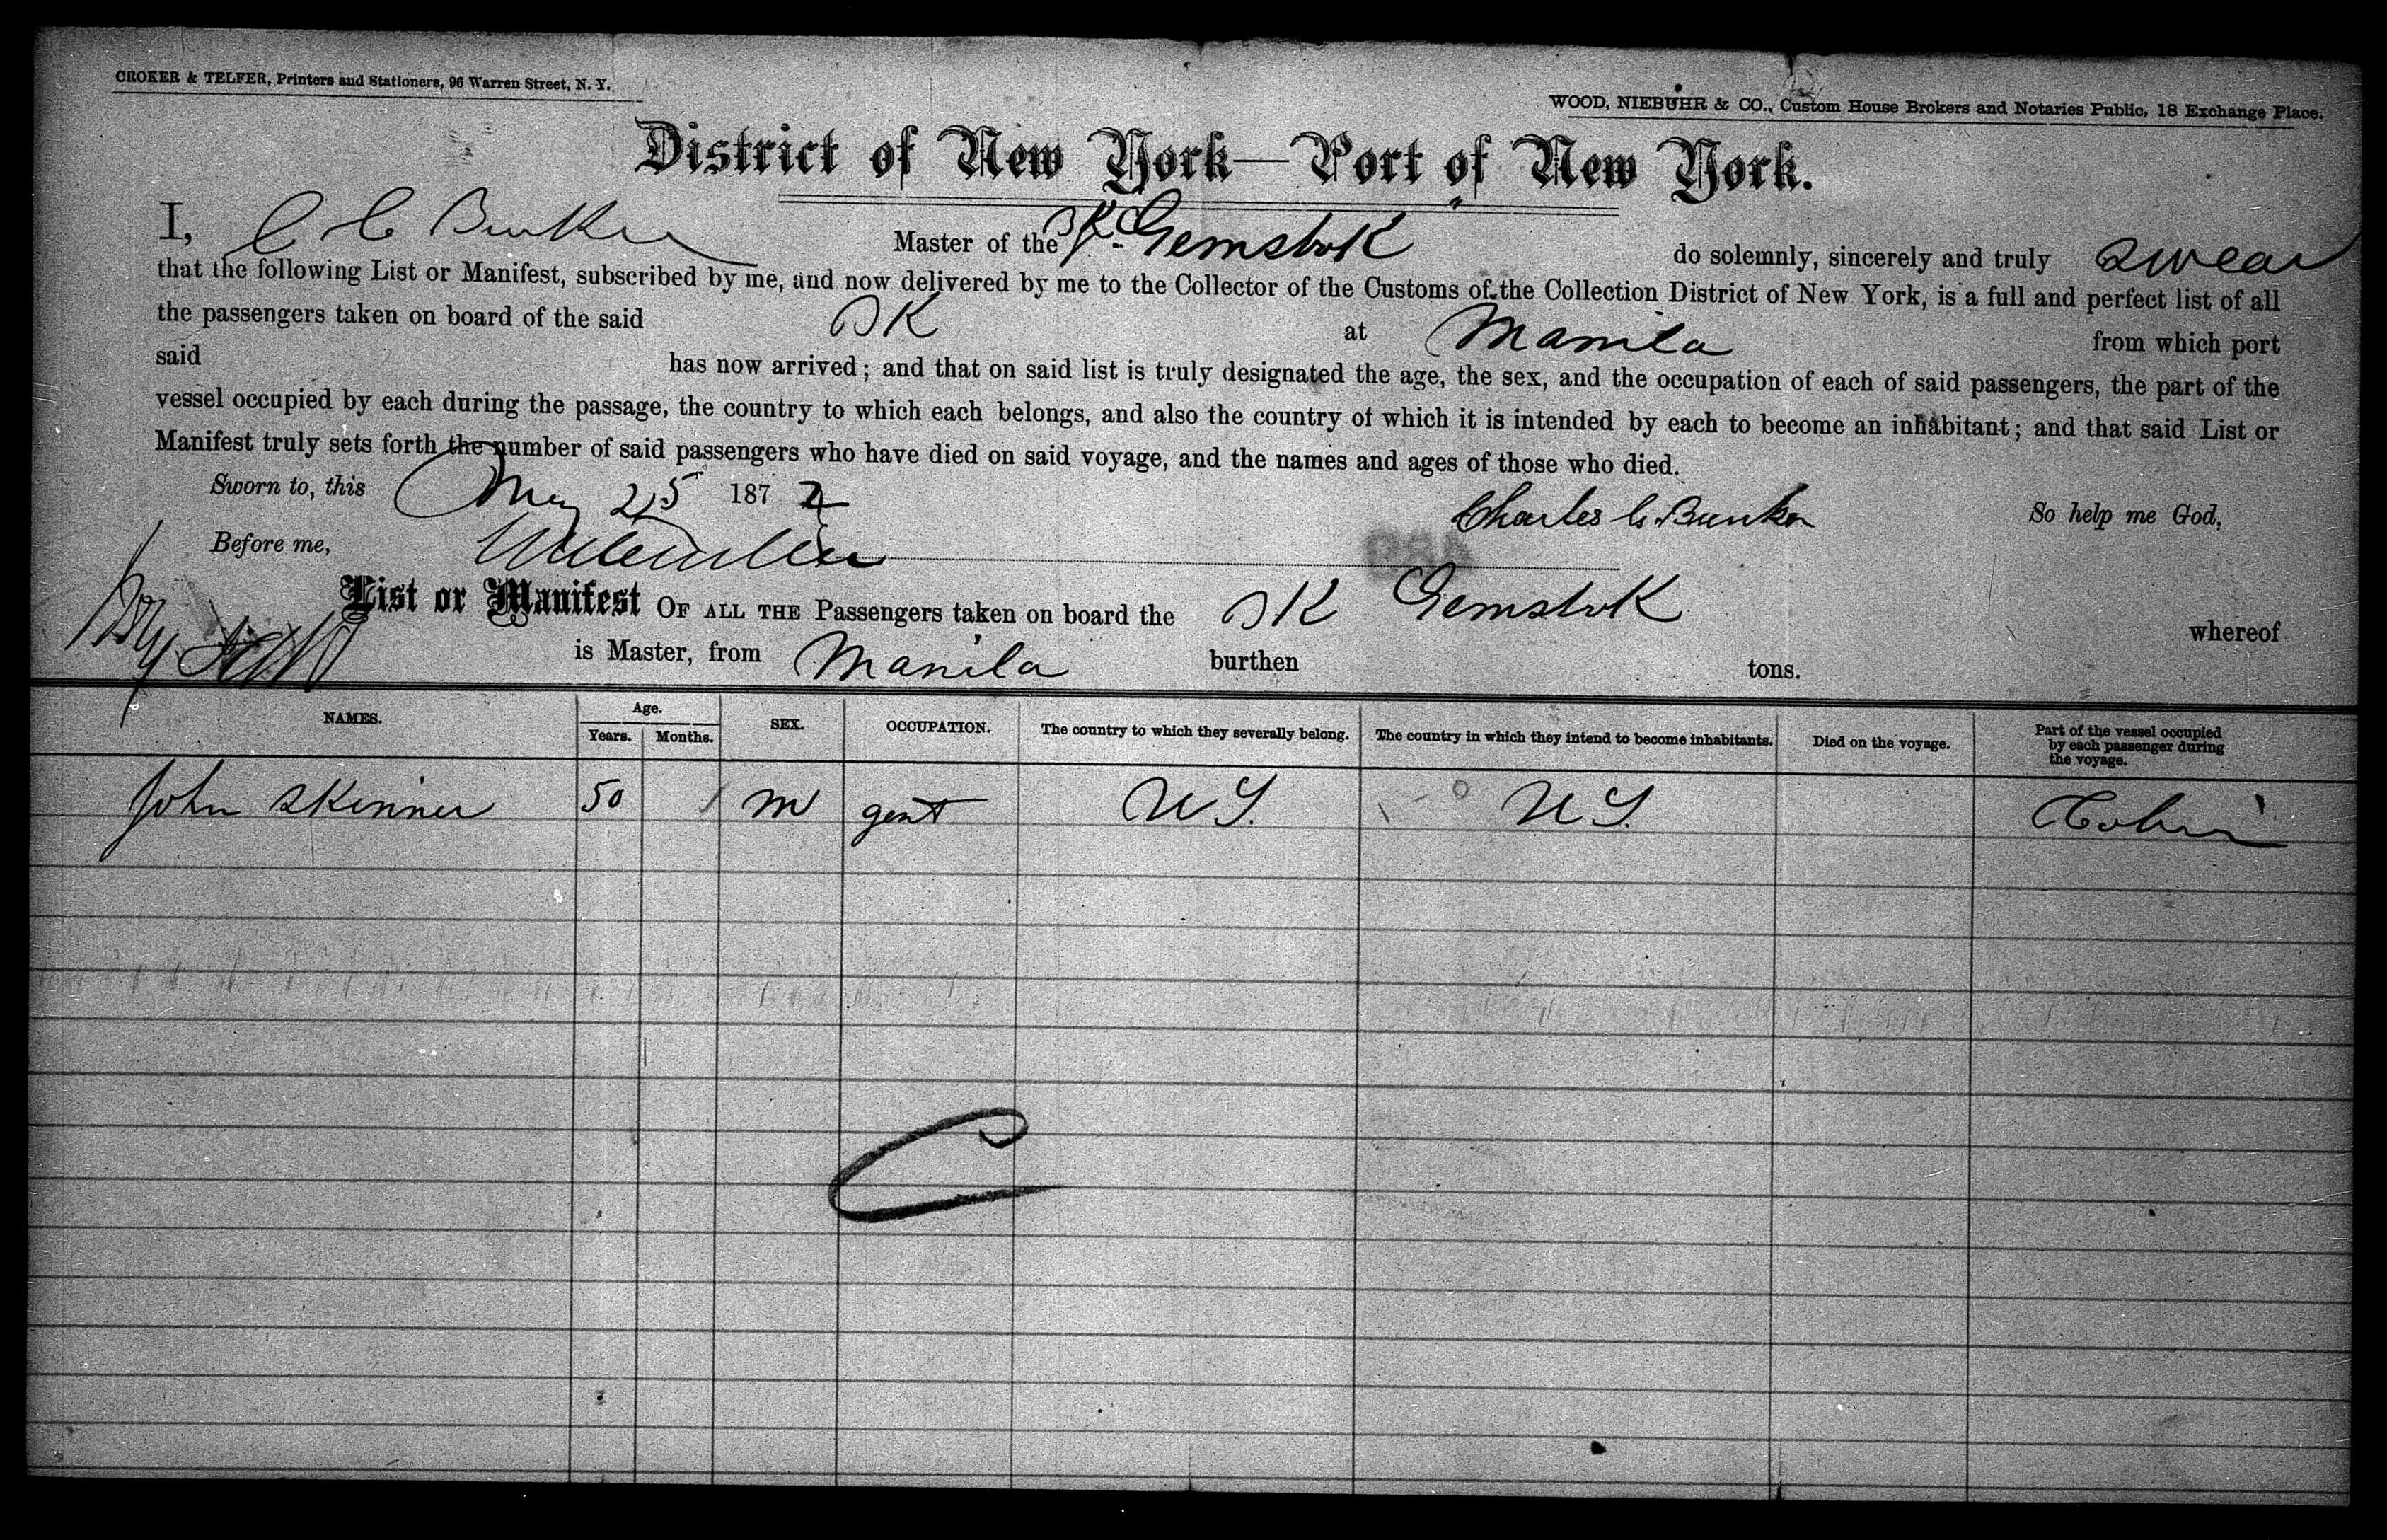 CROKER & TELFER, Printers and Stationers, 96 Warren Street, N. Y.
WOOD, NIEBUHR & CO., Custom House Brokers and Notaries Public, 18 Exchange Place.
District of New York—Port of New York.
I, C C Bunker Master of the Bk Gemsbok do solemnly, sincerely and truly swear
that the following List or Manifest, subscribed by me, and now delivered by me to the Collector of the Customs of the Collection District of New York, is a full and perfect list of all
the passengers taken on board of the said Bk at Manila from which port
said has now arrived; and that on said list is truly designated the age, the sex, and the occupation of each of said passengers, the part of the
vessel occupied by each during the passage, the country to which each belongs, and also the country of which it is intended by each to become an inhabitant; and that said List or
Manifest truly sets forth the number of said passengers who have died on said voyage, and the names and ages of those who died.
Sworn to, this May 25 1872 Charles C. Bunker So help me God,
Before me,
List or Manifest OF ALL THE Passengers taken on board the Bk Gemsbok whereof
is Master, from Manila burthen tons.
NAMES. Age. Years. Months. SEX. OCCUPATION. The country to which they severally belong. The country in which they intend to become inhabitants. Died on the voyage. Part of the vessel occupied by each passenger during the voyage.
John Skinner 50 M gent U S. U S. Cabin
C